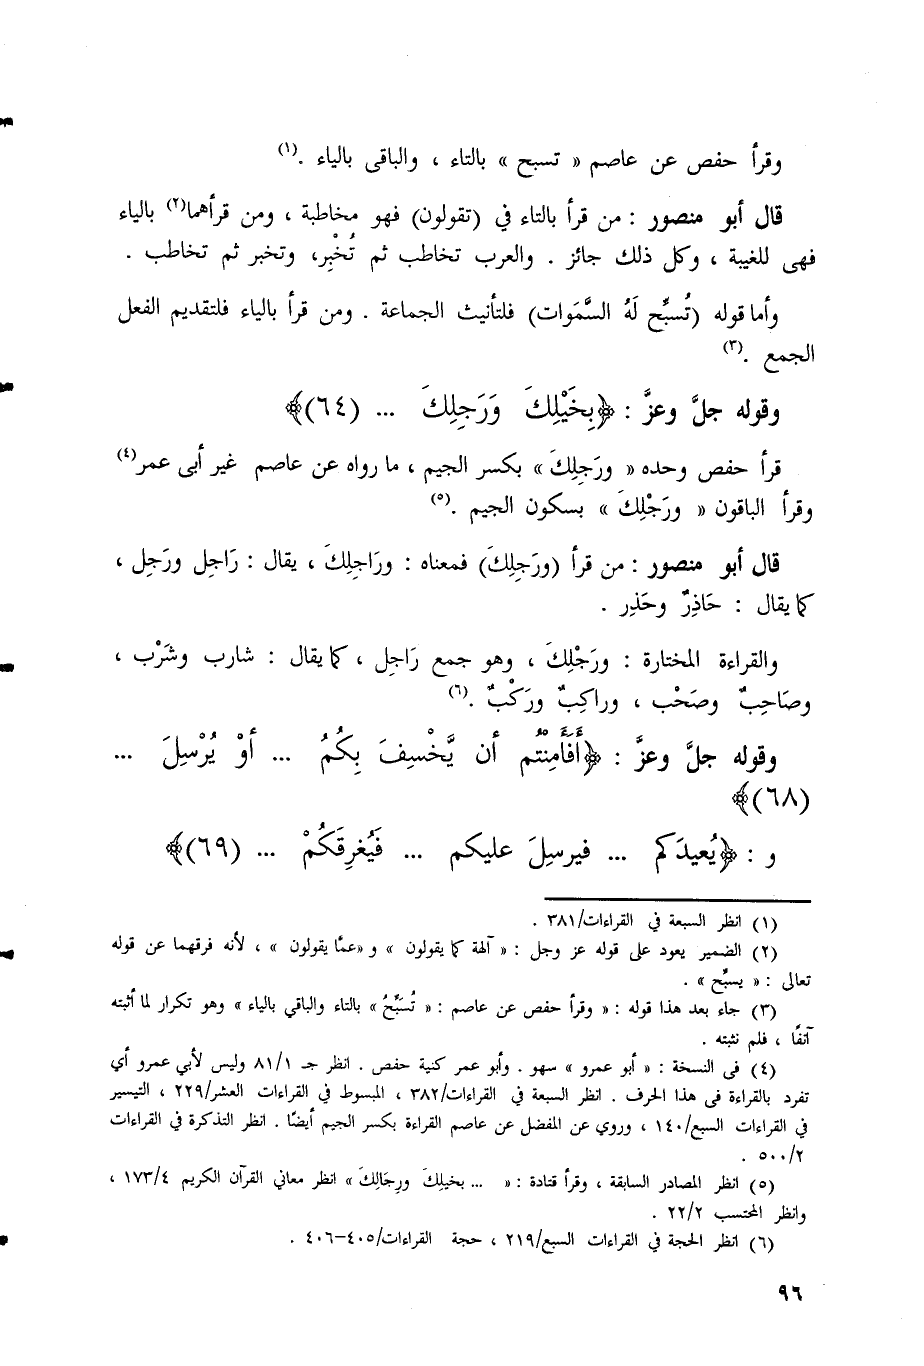 وقرأ حفص عن عاصم « تسبح » بالتاء ، والباقى بالياء .(١)
قال أبو منصور : من قرأ بالتاء في (تقولون) فهو مخاطبة ، ومن قرأهما(٢) بالياء
فهى للغيبة ، وكل ذلك جائز . والعرب تخاطب ثم تُخْبِر، وتخبر ثم تخاطب .
وأما قوله (تُسبِّح لَهُ السَّمَوات) فلتأنيث الجماعة . ومن قرأ بالياء فلتقديم الفعل
الجمع .(٣)
وقوله جلَّ وعزَّ : ﴿بِخَيْلِكَ وَرَجِلِكَ ... (٦٤)﴾
قرأ حفص وحده « ورَجِلِكَ » بكسر الجيم ، ما رواه عن عاصم غير أبى عمر(٤)
وقرأ الباقون « ورَجْلِكَ » بسكون الجيم .(٥)
قال أبو منصور : من قرأ (ورَجِلِكَ) فمعناه : ورَاجِلِكَ ، يقال : رَاجِل ورَجِل ،
كما يقال : حَاذِرٌ وحَذِر .
والقراءة المختارة : ورَجْلِكَ ، وهو جمع رَاجِل ، كما يقال : شارب وشَرْب ،
وصَاحِبٌ وصَحْب ، وراكِبٌ ورَكْبٌ .(٦)
وقوله جلَّ وعزَّ : ﴿أَفَأَمِنْتُم أن يَّخْسِفَ بِكُمُ ... أوْ يُرْسِلَ ...
(٦٨)﴾
و : ﴿يُعيدَكم ... فيرسِلَ عليكم ... فَيُغرِقَكُمْ ... (٦٩)﴾
(١) انظر السبعة في القراءات/٣٨١ .
(٢) الضمير يعود على قوله عز وجل : « آلهة كما يقولون » و «عمَّا يقولون » ، لأنه فرقهما عن قوله
تعالى : « يسبِّح » .
(٣) جاء بعد هذا قوله : « وقرأ حفص عن عاصم : « تُسَبِّحُ » بالتاء والباقي بالياء » وهو تكرار لما أثبته
آنفًا ، فلم نثبته .
(٤) فى النسخة : « أبو عمرو » سهو . وأبو عمر كنية حفص . انظر جـ ٨١/١ وليس لأبي عمرو أي
تفرد بالقراءة فى هذا الحرف . انظر السبعة في القراءات/٣٨٢ ، المبسوط في القراءات العشر/٢٢٩ ، التيسير
في القراءات السبع/١٤٠ ، وروي عن المفضل عن عاصم القراءة بكسر الجيم أيضًا . انظر التذكرة في القراءات
٥٠٠/٢ .
(٥) انظر المصادر السابقة ، وقرأ قتادة : « ... بخيلِكَ ورِجَالِكَ » انظر معاني القرآن الكريم ١٧٣/٤ ،
وانظر المحتسب ٢٢/٢ .
(٦) انظر الحجة في القراءات السبع/٢١٩ ، حجة القراءات/٤٠٥-٤٠٦ .
٩٦